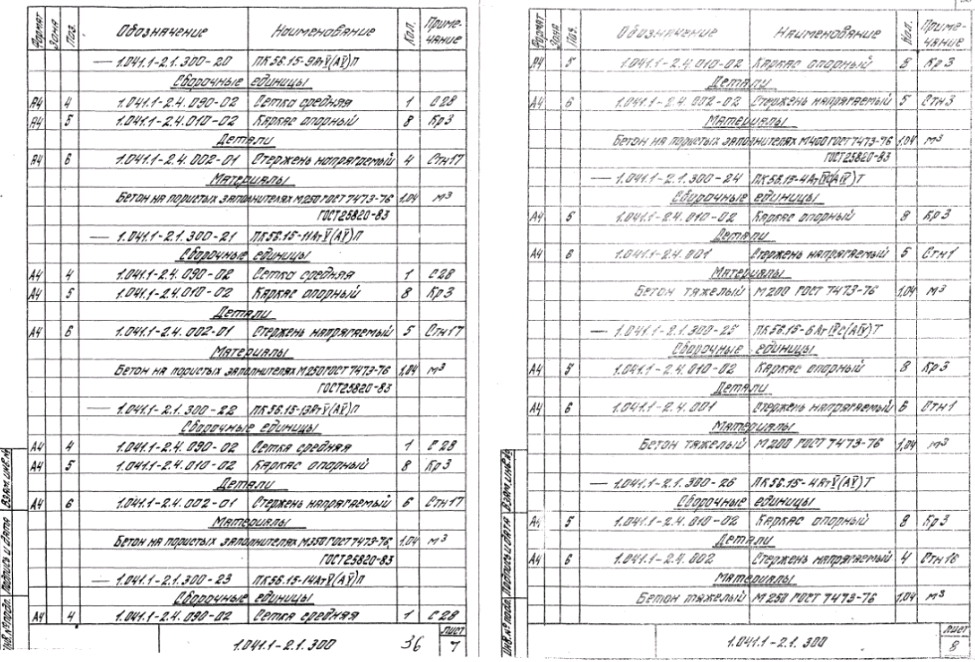 Формат Зона Поз. Обозначение Наименование Кол. Приме-чание
— 1.041.1-2.1.300-20 ПК56.15-9АтV(АV)П
Сборочные единицы
А4 4 1.041.1-2.4.090-02 Сетка средняя 1 С28
А4 5 1.041.1-2.4.010-02 Каркас опорный 8 Кр3
Детали
А4 6 1.041.1-2.4.002-01 Стержень напрягаемый 4 Стн17
Материалы
Бетон на пористых заполнителях М250 ГОСТ 7473-76 1,04 м³
ГОСТ25820-83
— 1.041.1-2.1.300-21 ПК56.15-11АтV(АV)П
Сборочные единицы
А4 4 1.041.1-2.4.090-02 Сетка средняя 1 С28
А4 5 1.041.1-2.4.010-02 Каркас опорный 8 Кр3
Детали
А4 6 1.041.1-2.4.002-01 Стержень напрягаемый 5 Стн17
Материалы
Бетон на пористых заполнителях М250 ГОСТ 7473-76 1,04 м³
ГОСТ25820-83
— 1.041.1-2.1.300-22 ПК56.15-13АтV(АV)П
Сборочные единицы
А4 4 1.041.1-2.4.090-02 Сетка средняя 1 С28
А4 5 1.041.1-2.4.010-02 Каркас опорный 8 Кр3
Детали
А4 6 1.041.1-2.4.002-01 Стержень напрягаемый 6 Стн17
Материалы
Бетон на пористых заполнителях М350 ГОСТ 7473-76 1,04 м³
ГОСТ25820-83
— 1.041.1-2.1.300-23 ПК56.15-14АтV(АV)П
Сборочные единицы
А4 4 1.041.1-2.4.090-02 Сетка средняя 1 С28
Инв.№ подл. Подпись и дата Взам.инв.№
1.041.1-2.1.300 36 Лист 7
Формат Зона Поз. Обозначение Наименование Кол. Приме-чание
А4 5 1.041.1-2.4.010-02 Каркас опорный 8 Кр3
Детали
А4 6 1.041.1-2.4.002-02 Стержень напрягаемый 5 Стн3
Материалы
Бетон на пористых заполнителях М400 ГОСТ 7473-76 1,04 м³
ГОСТ25820-83
— 1.041.1-2.1.300-24 ПК56.15-4АтIVС(АIV)Т
Сборочные единицы
А4 5 1.041.1-2.4.010-02 Каркас опорный 8 Кр3
Детали
А4 6 1.041.1-2.4.001 Стержень напрягаемый 5 Стн1
Материалы
Бетон тяжелый М200 ГОСТ 7473-76 1,04 м³
— 1.041.1-2.1.300-25 ПК56.15-6АтIVС(АIV)Т
Сборочные единицы
А4 5 1.041.1-2.4.010-02 Каркас опорный 8 Кр3
Детали
А4 6 1.041.1-2.4.001 Стержень напрягаемый 6 Стн1
Материалы
Бетон тяжелый М200 ГОСТ 7473-76 1,04 м³
— 1.041.1-2.1.300-26 ПК56.15-4АтV(АV)Т
Сборочные единицы
А4 5 1.041.1-2.4.010-02 Каркас опорный 8 Кр3
Детали
А4 6 1.041.1-2.4.002 Стержень напрягаемый 4 Стн16
Материалы
Бетон тяжелый М250 ГОСТ 7473-76 1,04 м³
Инв.№ подл. Подпись и дата Взам.инв.№
1.041.1-2.1.300 Лист 8